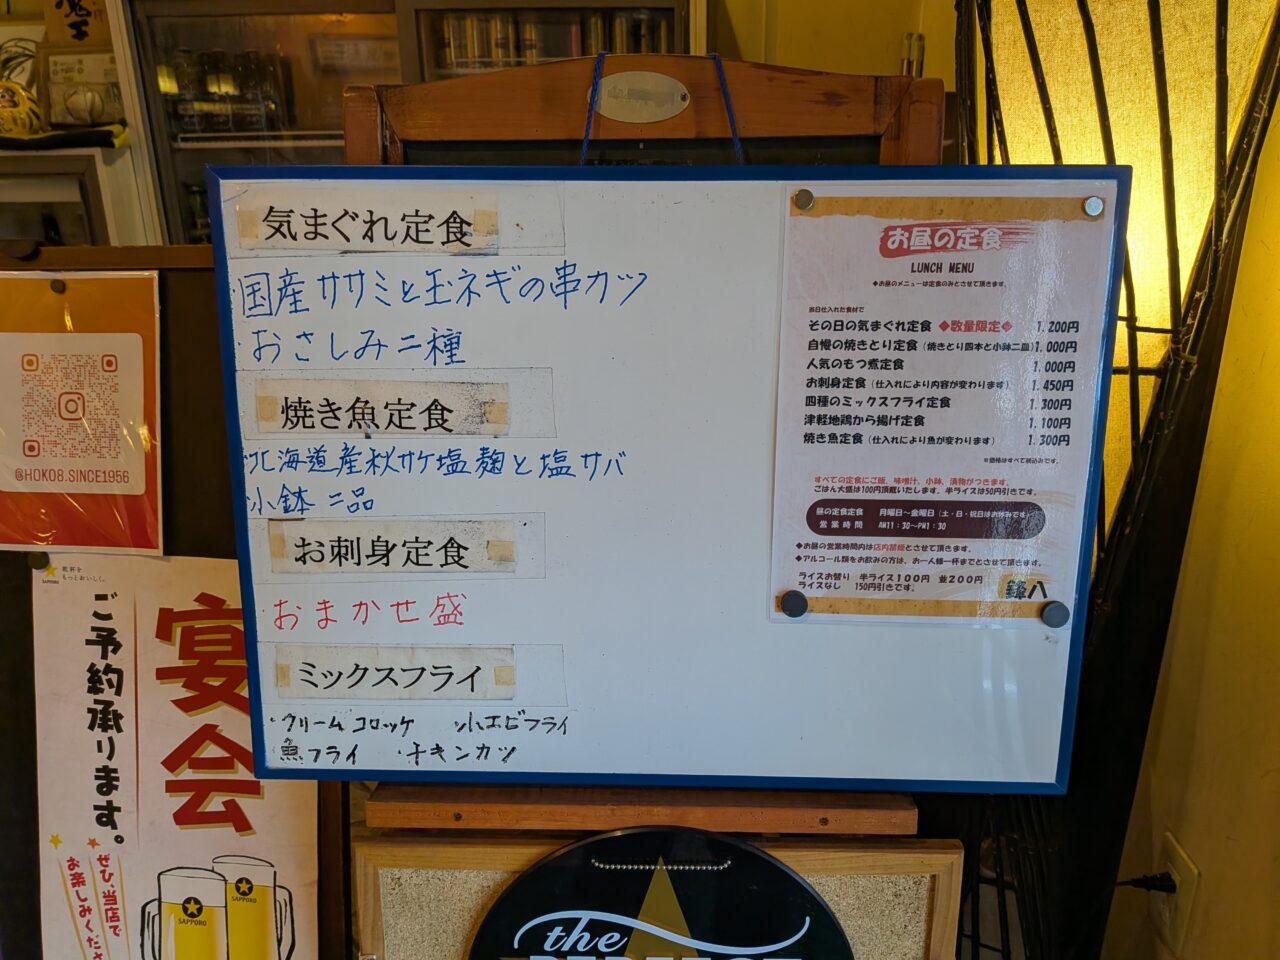 魔王
気まぐれ定食
・国産ササミと玉ネギの串カツ
・おさしみ二種
焼き魚定食
・北海道産秋サケ塩麹と塩サバ
小鉢二品
お刺身定食
・おまかせ盛
ミックスフライ
・クリームコロッケ 小エビフライ
魚フライ ・チキンカツ
お昼の定食
LUNCH MENU
◆お昼のメニューは定食のみとさせて頂きます。
当日仕入れた食材で
その日の気まぐれ定食 ◆数量限定◆ 1.200円
自慢の焼きとり定食(焼きとり四本と小鉢二皿)1.000円
人気のもつ煮定食 1.000円
お刺身定食(仕入れにより内容が変わります) 1.450円
四種のミックスフライ定食 1.300円
津軽地鶏から揚げ定食 1.100円
焼き魚定食(仕入れにより魚が変わります) 1.300円
※価格はすべて税込みです。
すべての定食にご飯、味噌汁、小鉢、漬物がつきます。
ごはん大盛は100円頂戴いたします。半ライスは50円引きです。
昼の定食定食 月曜日～金曜日(土・日・祝日はお休みです)
営業時間 AM11：30～PM1：30
◆お昼の営業時間内は店内禁煙とさせて頂きます。
◆アルコール類をお飲みの方は、お一人様一杯までとさせて頂きます。
ライスお替り 半ライス100円 並200円
ライスなし 150円引きです。
鉾八
@HOKO8.SINCE1956
SAPPORO
乾杯を
もっとおいしく。
宴会
ご予約承ります。
ぜひ、当店で
お楽しみくださ
SAPPORO
SAPPORO
the
PERFECT